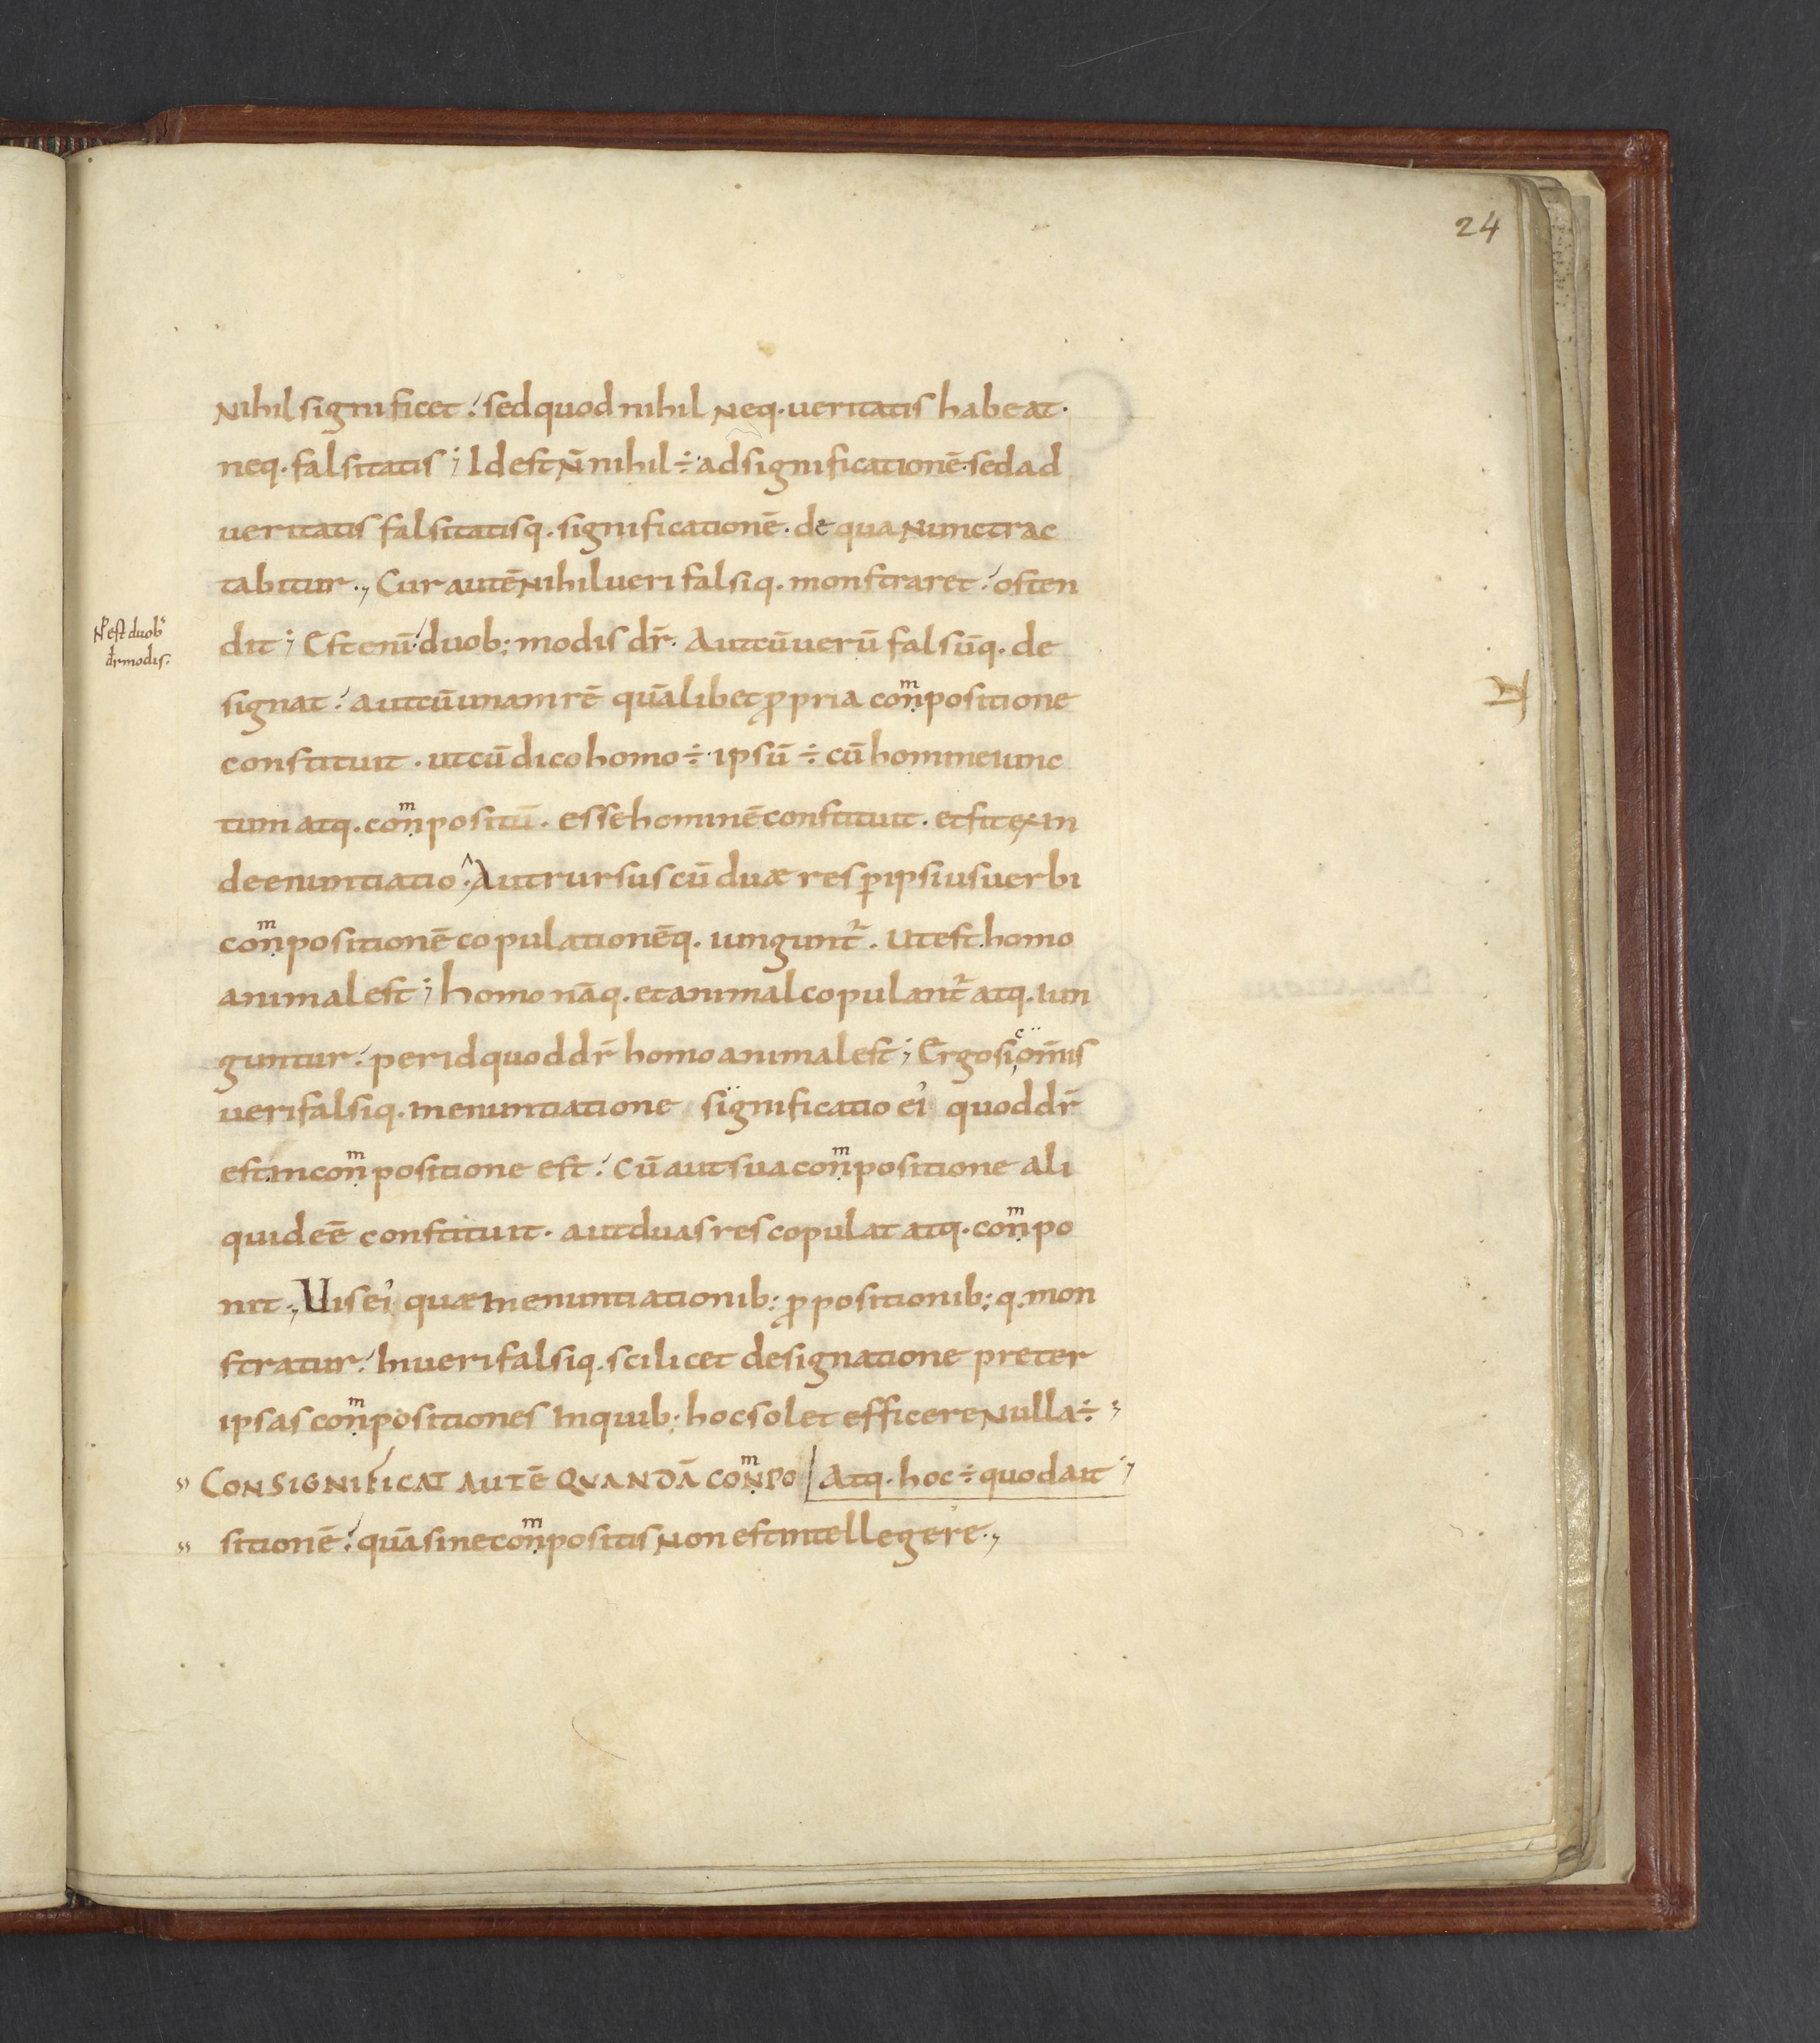 24
Nihil significet. sed quod nihil neq. ueritatis habeat.
neq. falsitatis; Id est n̄ nihil ÷ ad significationē. sed ad
ueritatis falsitatisq. significationē. de qua nunc trac
tabitur., Cur autē nihil ueri falsiq. monstraret. osten
N̄ est duobꝰ
dr̄ modis.
dit; Est eni duob: modis dr̄. Aut cū uerū falsūq. de
signat. aut cū unam rē quālibet ꝓpria conpositione
m
constituit. ut cū dico homo ÷. ipsū ÷ cū homine iunc
tum atq. conpositū. esse hominē constituit. et fit ex in
m
de enuntiatio. Aut rursus cū duæ res ꝑ ipsius uerbi
conpositionē copulationēq. iungunt᷑. Ut est homo
m
animal est; homo nāq. et animal copulant᷑ atq. iun
guntur. per id quod dr̄ homo animal est; Ergo si om̄is
c
ueri falsiq. in enuntiatione significatio ei quod dr̄
est in conpositione est. Cū aut sua conpositione ali
m m
quid eē constituit. aut duas res copulat atq. conpo
m
nit., Uis ei quæ in enuntiationib: ꝓpositionib: q. mon
stratur. In ueri falsiq. scilicet designatione preter
ipsas conpositiones in quib: hoc solet efficere nulla ÷;
m
CONSIGNIFICAT AUTĒ QUANDĀ CONPO Atq. hoc ÷ quod ait
m
sitionē. quā sine conpositis non est intellegere.,
m